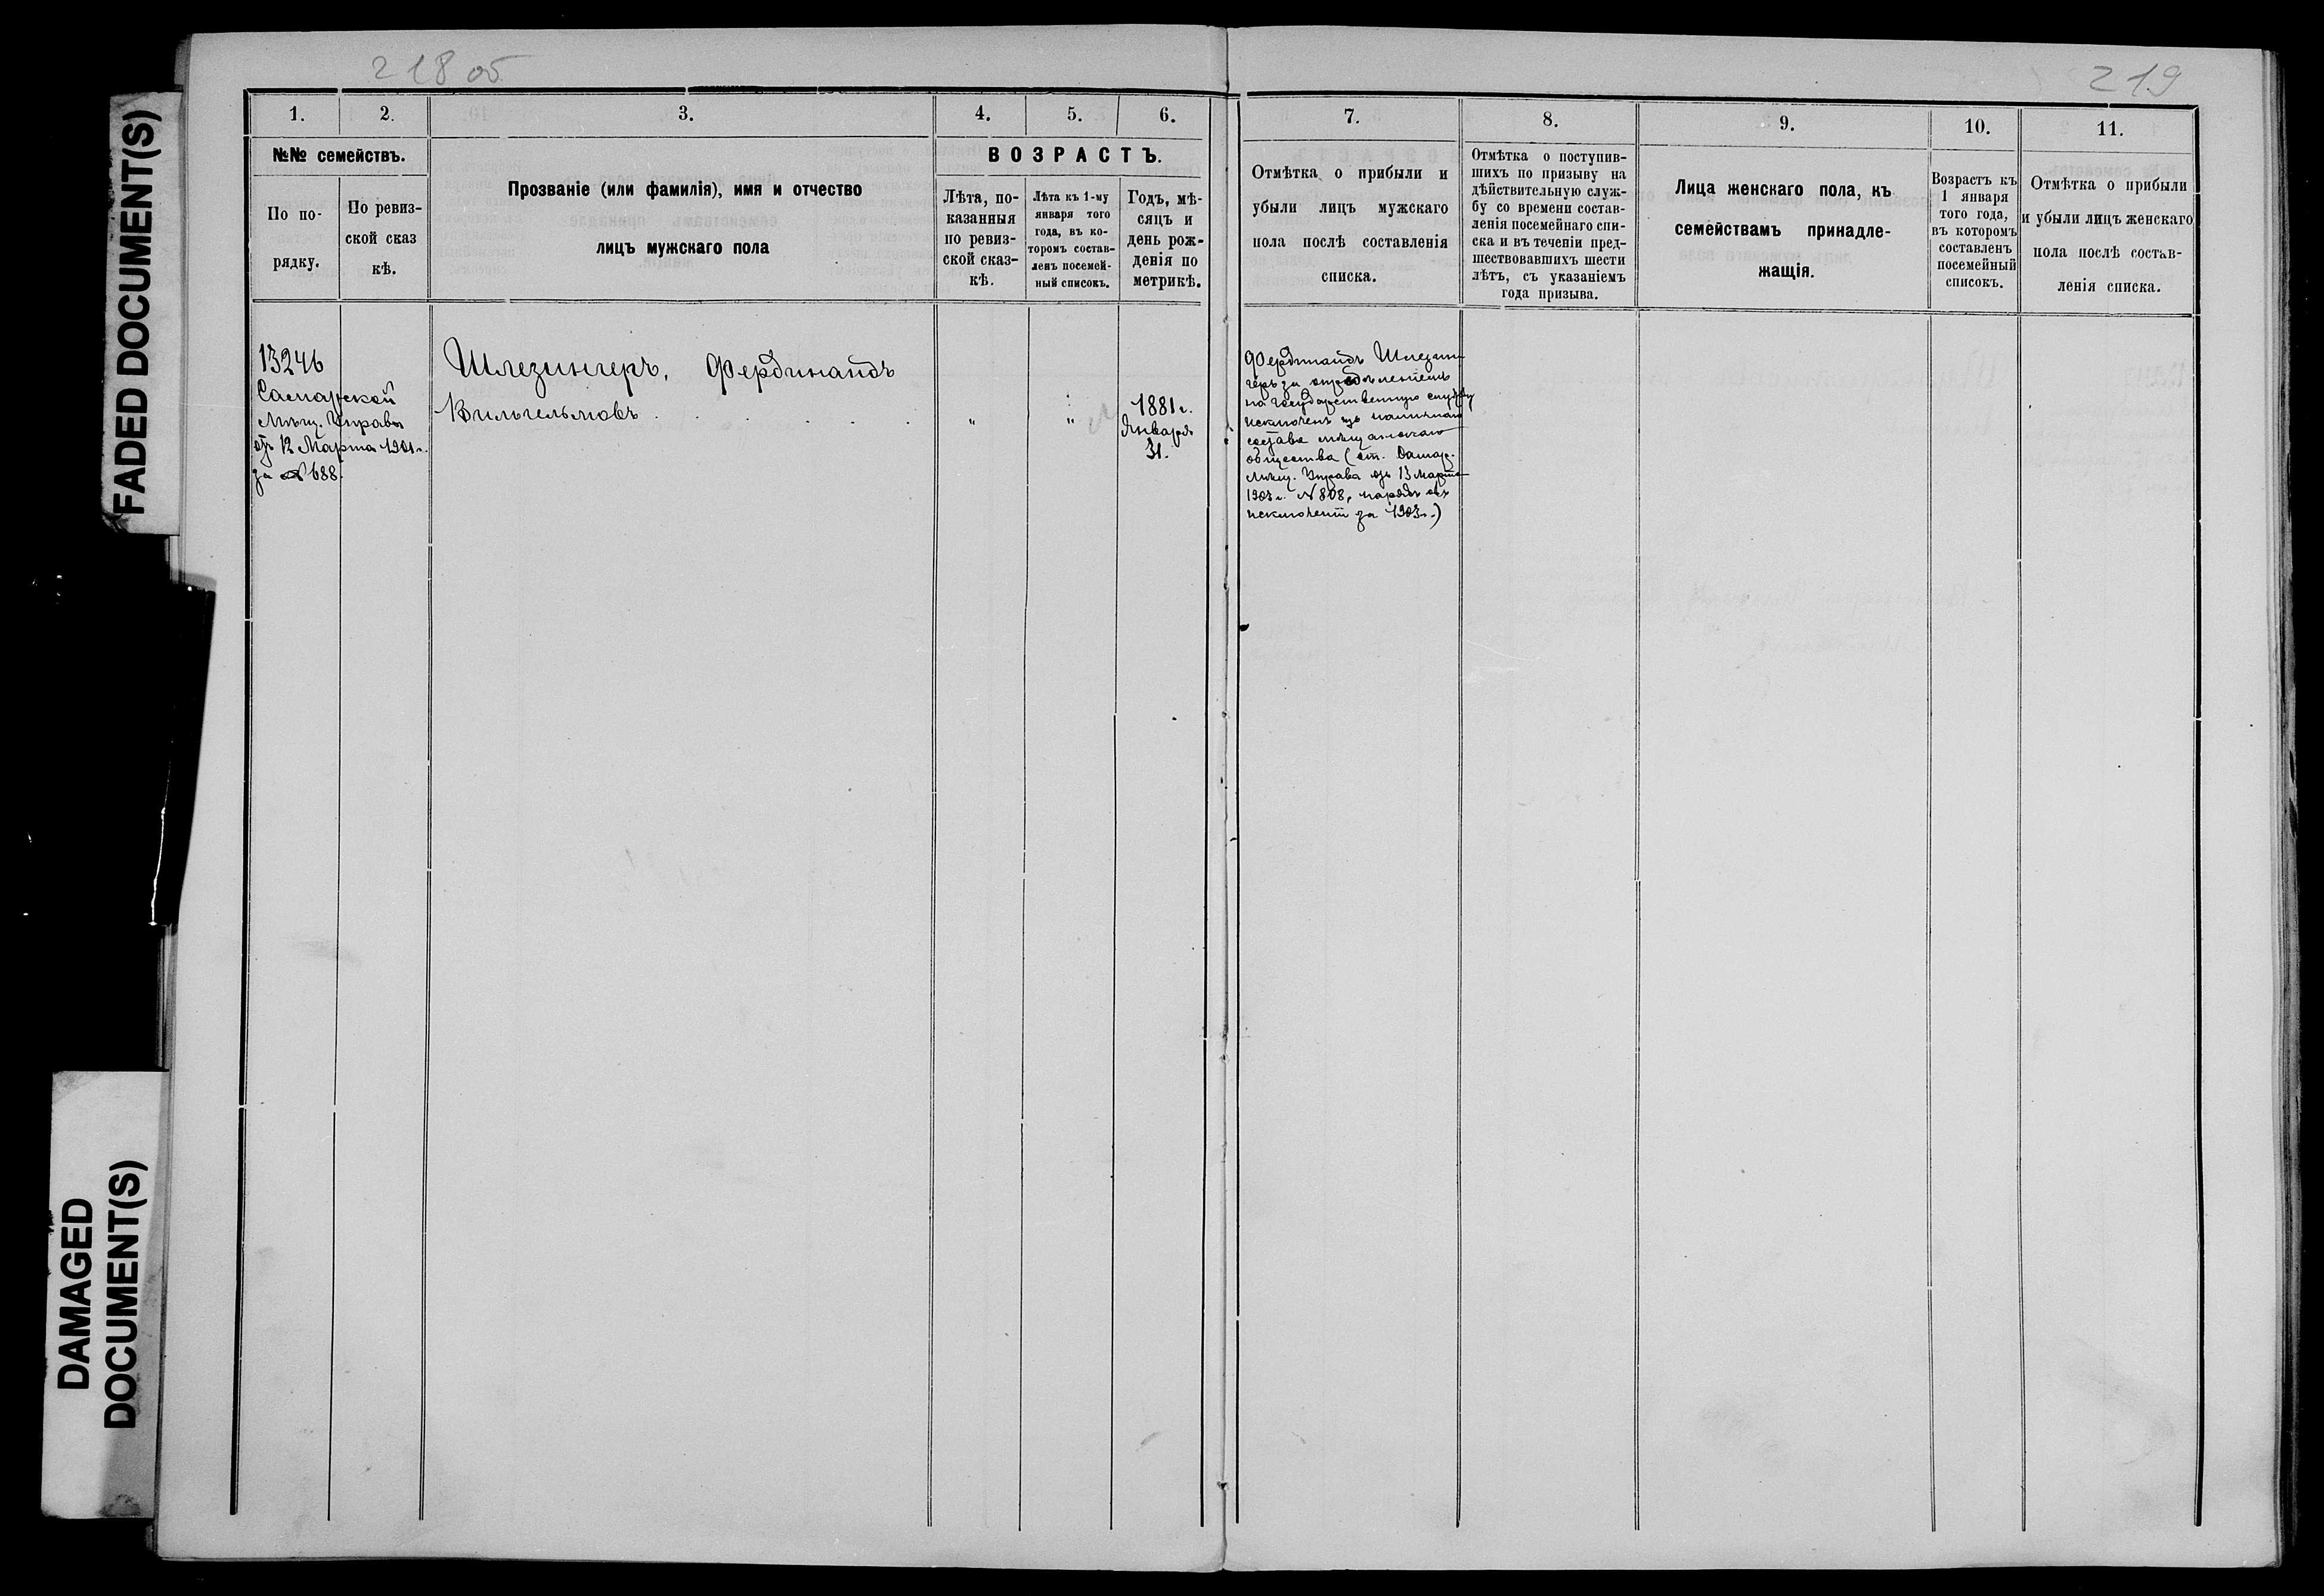 FADED DOCUMENT(S)
DAMAGED
DOCUMENT(S)
218 об
219
1.
2.
3.
4.
5.
6.
№№ семействъ.
По по-
рядку.
По ревиз-
ской сказ
кѣ.
Прозваніе (или фамилія), имя и отчество
лицъ мужскаго пола
ВОЗРАСТЪ.
Лѣта, по-
казанныя
по ревиз-
ской сказ-
кѣ.
Лѣта къ 1-му
января того
года, въ ко-
торомъ состав-
ленъ посемей-
ный списокъ.
Годъ, мѣ-
сяцъ и
день рож-
денія по
метрикѣ.
13246
Самарской
Мѣщ. Управы
отъ 12 Марта 1901 г.
за № 688.
Шлезингеръ, Фердинандъ
Вильгельмовъ
"
"
1881 г.
Января
31.
7.
8.
9.
10.
11.
Отмѣтка о прибыли и
убыли лицъ мужскаго
пола послѣ составленія
списка.
Отмѣтка о поступив-
шихъ по призыву на
дѣйствительную служ-
бу со времени состав-
ленія посемейнаго спи-
ска и въ теченіи пред-
шествовавшихъ шести
лѣтъ, съ указаніемъ
года призыва.
Лица женскаго пола, къ
семействамъ принадле-
жащія.
Возрастъ къ
1 января
того года,
въ которомъ
составленъ
посемейный
списокъ.
Отмѣтка о прибыли
и убыли лицъ женскаго
пола послѣ состав-
ленія списка.
Фердинандъ Шлезин-
геръ за опредѣленіемъ
на Государственную службу
исключенъ изъ наличнаго
состава мѣщанскаго
общества (от. Самар.
Мѣщ. Управа отъ 13 Марта
1903 г. № 808, нарядъ объ
исключеніи за 1903 г.)